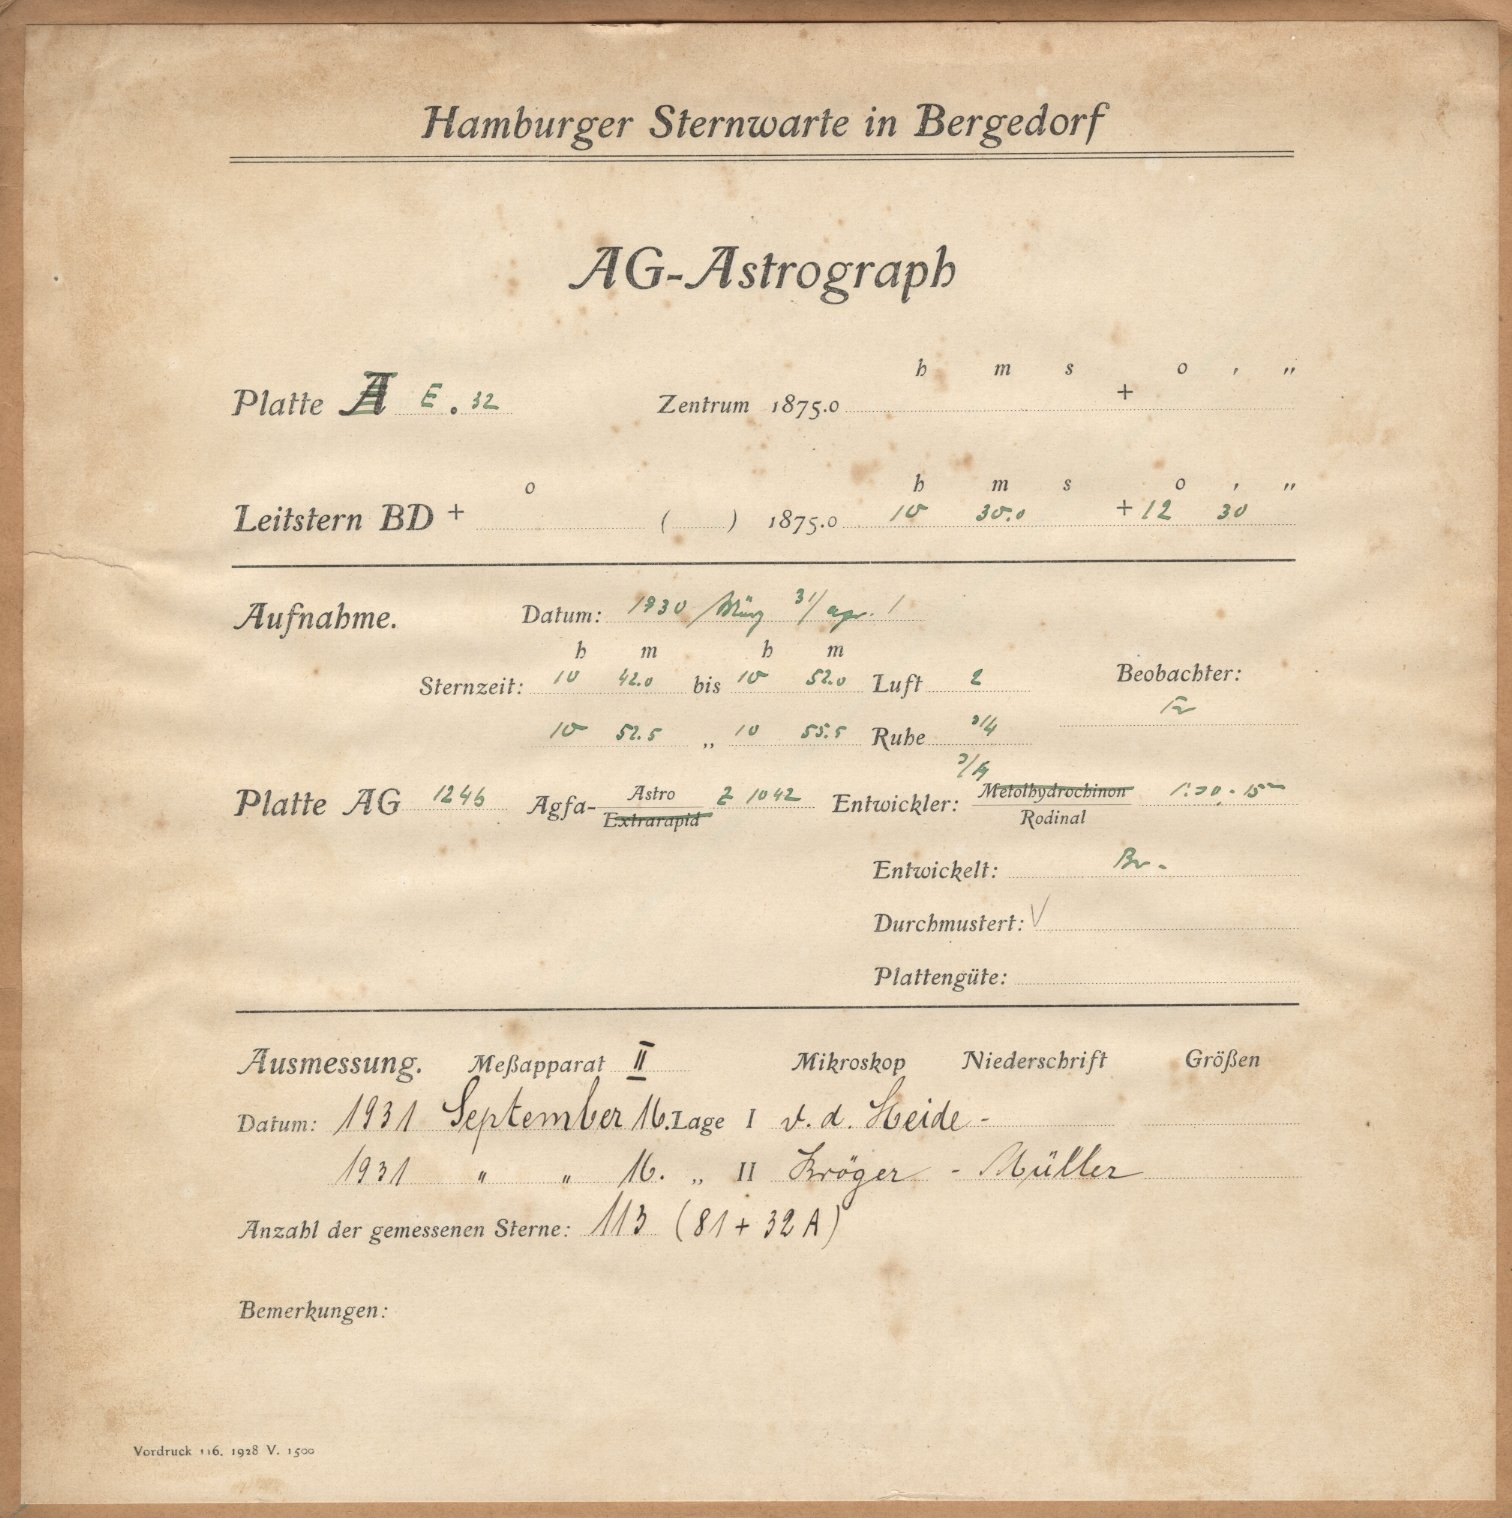 Hamburger Sternwarte in Bergedorf
AG-Astrograph
h m s o ′ ″
Platte A E. 32 Zentrum 1875.0 +
o h m s o ′ ″
Leitstern BD + ( ) 1875.0 10 30.0 + 12 30
Aufnahme. Datum: 1930 März 31/Apr. 1
h m h m
Sternzeit: 10 42.0 bis 10 52.0 Luft 2 Beobachter:
10 52.5 „ 10 55.5 Ruhe 3/4
Platte AG 1246 Agfa- Astro Z 1042 Entwickler: Metolhydrochinon
Extrarapid Rodinal
Entwickelt: Br.
Durchmustert: V
Plattengüte:
Ausmessung. Meßapparat II Mikroskop Niederschrift Größen
Datum: 1931 September 16. Lage I v. d. Heide -
1931 " " 16. „ II Kröger - Müller
Anzahl der gemessenen Sterne: 113 (81 + 32 A)
Bemerkungen:
Vordruck 116. 1928 V. 1500